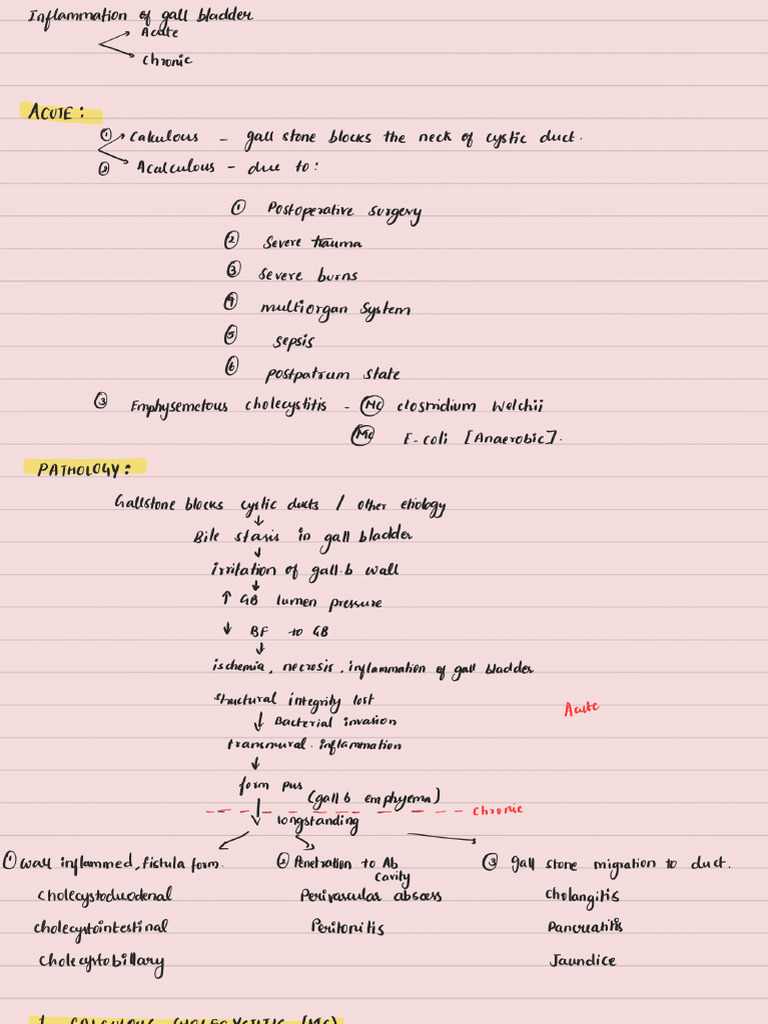 Inflammation of gall bladder
Acute
Chronic
ACUTE:
① Calculous - gall stone blocks the neck of cystic duct.
② Acalculous - due to:
① Postoperative surgery
② Severe trauma
③ Severe burns
④ multiorgan system
⑤ sepsis
⑥ postpatrum state
③ Emphysemetous cholecystitis - MC clostridium Welchii
MC E-coli [Anaerobic].
PATHOLOGY:
Gallstone blocks cystic ducts / other etiology
↓
Bile stasis in gall bladder
↓
irritation of gall.b wall
↓
↑ GB lumen pressure
↓ BF to GB
↓
ischemia, necrosis, inflammation of gall bladder
structural integrity lost
Acute
↓ Bacterial invasion
transmural inflammation
↓
form pus
(gall b emphyema)
chronic
↓ longstanding
① wall inflammed, fistula form.
cholecystoduodenal
cholecystointestinal
cholecystobillary
② Penetration to Ab
cavity
Perivascular abscess
Peritonitis
③ gall stone migration to duct.
Cholangitis
Pancreatitis
Jaundice
1. CALCULOUS CHOLECYSTITIC (MC)